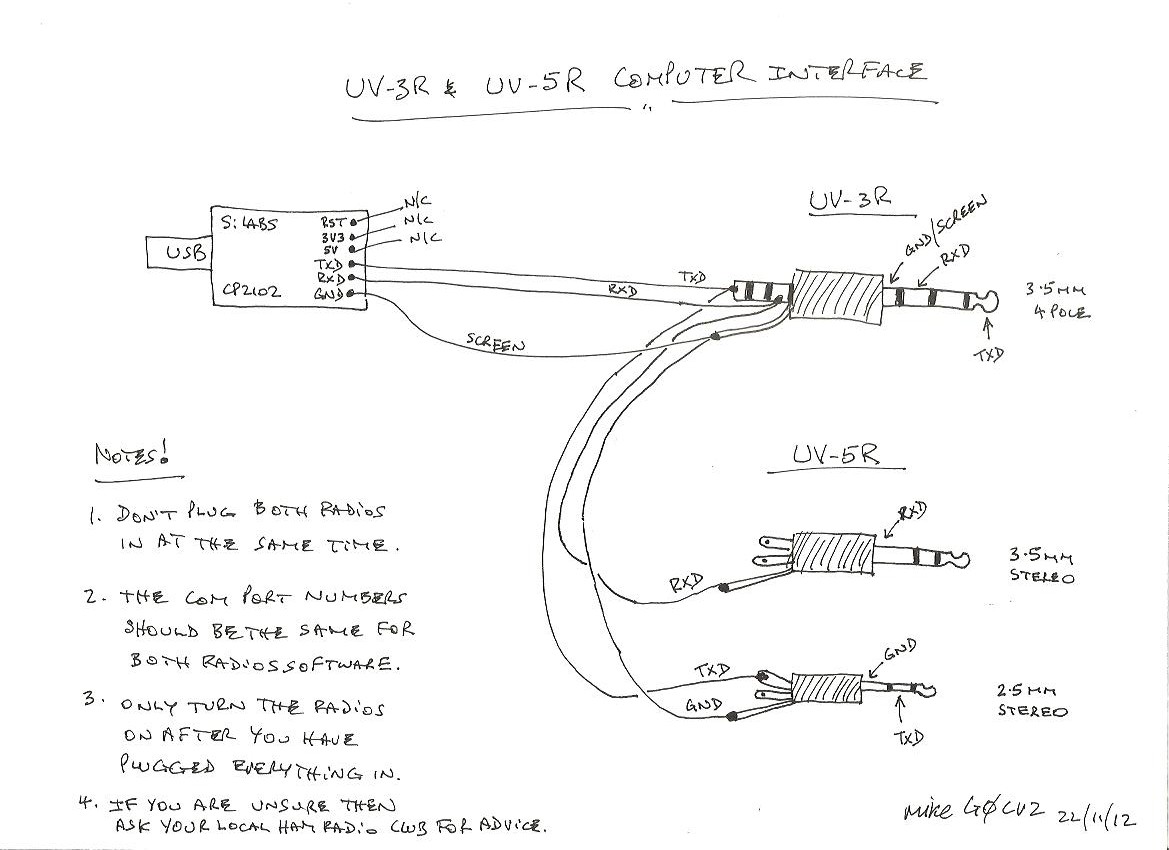 UV-3R & UV-5R COMPUTER INTERFACE
USB
Si LABS
CP2102
RST N/C
3V3 N/C
5V N/C
TXD
RXD
GND
TXD
RXD
SCREEN
UV-3R
GND/SCREEN
RXD
TXD
3.5MM
4 POLE
NOTES!
1. DON'T PLUG BOTH RADIOS
IN AT THE SAME TIME.
2. THE COM PORT NUMBERS
SHOULD BE THE SAME FOR
BOTH RADIOS SOFTWARE.
3. ONLY TURN THE RADIOS
ON AFTER YOU HAVE
PLUGGED EVERYTHING IN.
4. IF YOU ARE UNSURE THEN
ASK YOUR LOCAL HAM RADIO CLUB FOR ADVICE.
UV-5R
RXD
RXD
3.5MM
STEREO
TXD
GND
GND
TXD
2.5MM
STEREO
MIKE GØCVZ 22/11/12